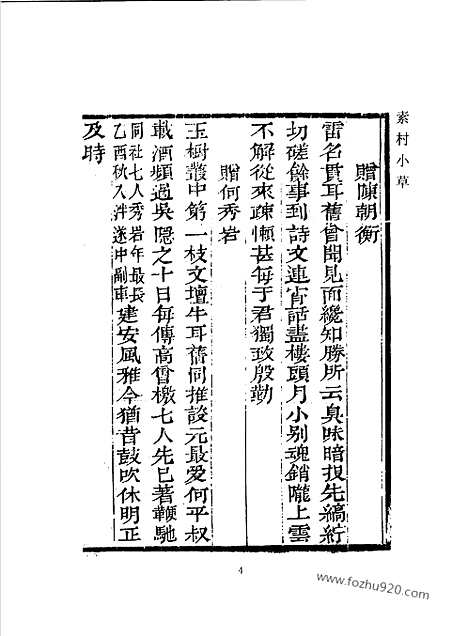 素村小草
贈陳朝衡
雷名貫耳舊曾聞見面纔知勝所云臭味暗投先縞紵
切磋餘事到詩文連宵話盡樓頭月小别魂銷隴上雲
不解從來疎懶甚每于君獨致殷勤
贈何秀岩
玉樹叢中第一枝文壇牛耳舊同推談元最愛何平叔
載酒頻過吳隱之十日每傳高會檄七人先已著鞭馳
同社七人秀岩年最長
乙酉秋入泮遂中副車
建安風雅今猶昔鼓吹休明正
及時
4
www.fozhu920.com